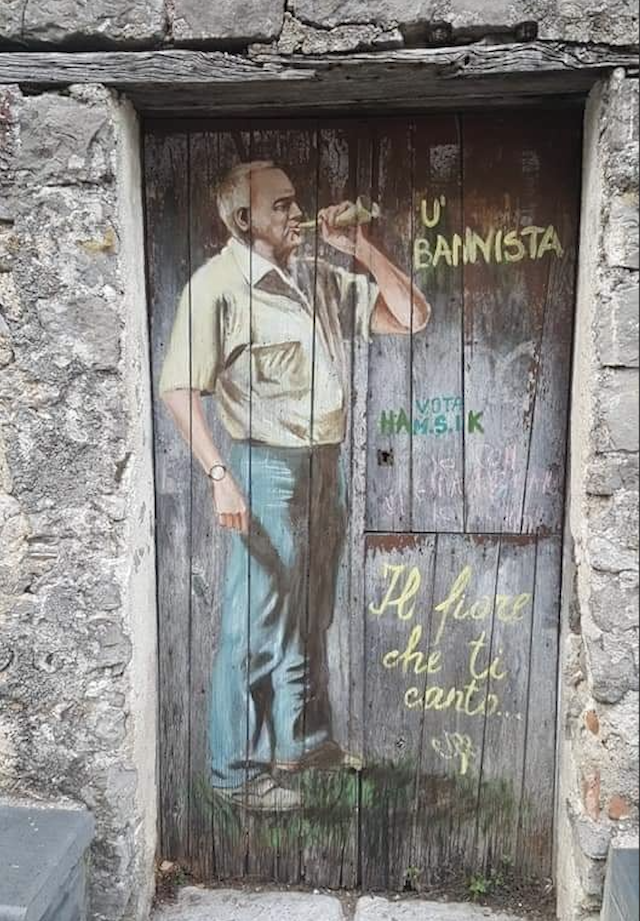 U'
BANNISTA
VOTA
HAM.S.IK
Il fiore
che ti
canto...